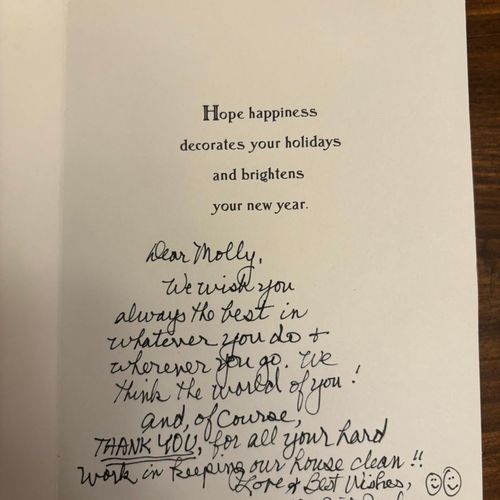 Hope happiness
decorates your holidays
and brightens
your new year.
Dear Molly,
We wish you
always the best in
whatever you do +
wherever you go. We
think the world of you!
and, of course,
THANK YOU, for all your hard
work in keeping our house clean!!
Love & Best Wishes,